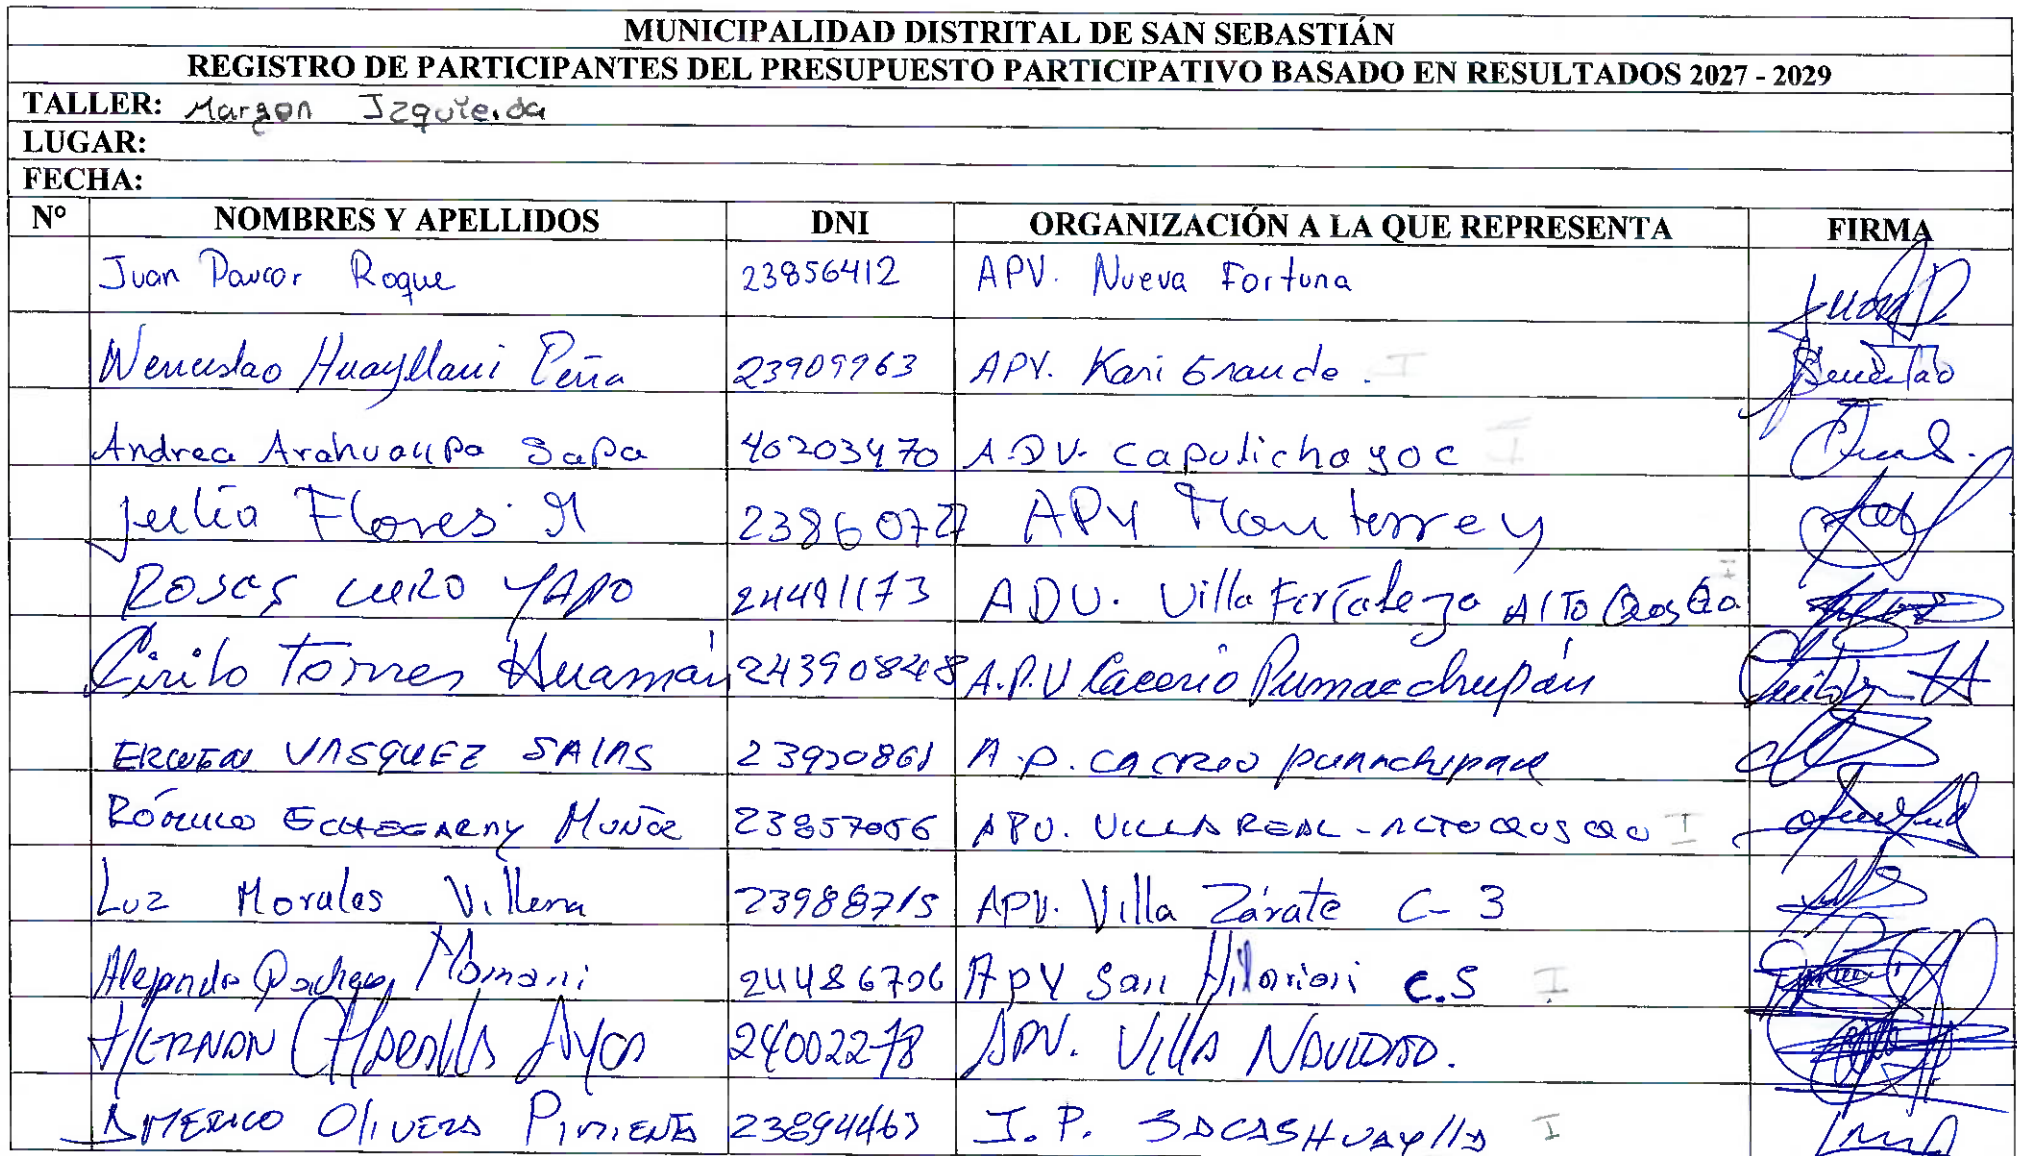 MUNICIPALIDAD DISTRITAL DE SAN SEBASTIÁN
REGISTRO DE PARTICIPANTES DEL PRESUPUESTO PARTICIPATIVO BASADO EN RESULTADOS 2027 - 2029
TALLER: Margen Izquierda
LUGAR:
FECHA:
Nº NOMBRES Y APELLIDOS DNI ORGANIZACIÓN A LA QUE REPRESENTA FIRMA
Juan Paucar Roque 23856412 APV. Nueva Fortuna
Wenceslao Huayllani Peña 23909963 APV. Kari Grande. I
Andrea Arahuallpa Sapa 40203470 A.D.V. Capulichayoc I
Julia Flores M 23860727 APV Monterrey
ROSAS CURO YAPO 24491173 ADV. Villa Fortaleza Alto Qosqo
Cirilo Torres Huamán 243908248 A.P.V Cacerio Pumacchupán
VASQUEZ SALAS 23920861 A.P.
RÓMULO ECHEGARAY MUÑOZ 23857056 APV. VILLA REAL - ALTO QOSQO I
Luz Morales Villena 23988715 APV. Villa Zárate C-3
Alejandro Pacheco Mamani 24486706 APV San Hilarion C.S I
HERNAN 24002278 APV. Villa NAVIDAD.
AMERICO OLIVERA PIMIENTA 23894463 J. P. SACASHUAYLLA I